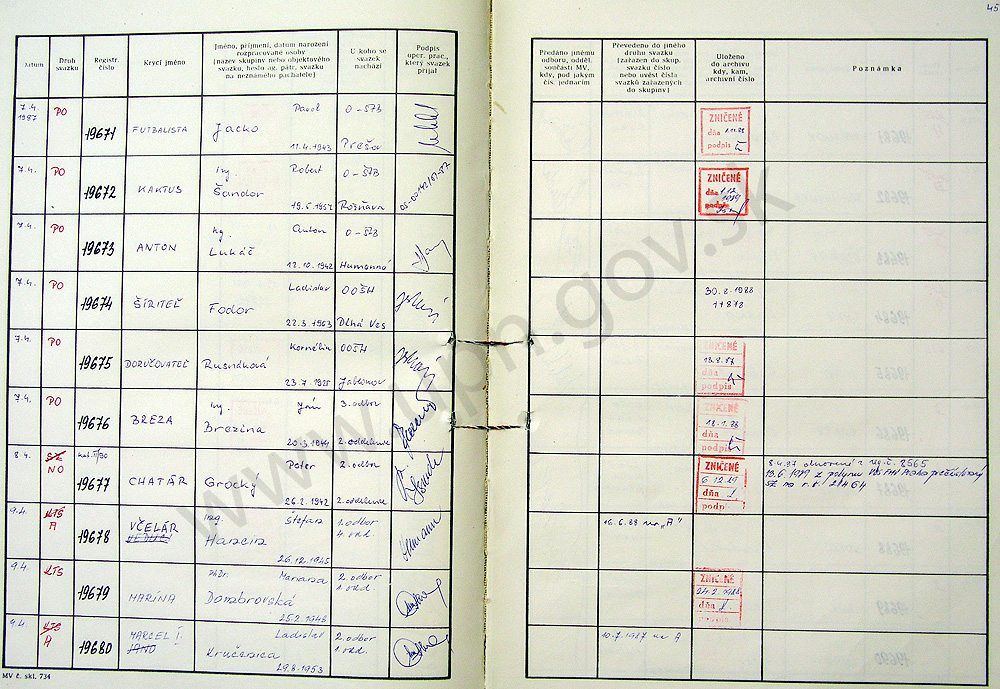 45
Datum
Druh svazku
Registr. číslo
Krycí jméno
Jméno, příjmení, datum narození
rozpracované osoby
(název skupiny nebo objektového
svazku, heslo ag. pátr. svazku
na neznámého pachatele)
U koho se
svazek
nachází
Podpis
oper. prac.,
který svazek
přijal
Předáno jinému
odboru, odděl.
součásti MV,
kdy, pod jakým
čís. jednacím
Převedeno do jiného
druhu svazku
(zařazen do skup.
svazku číslo
nebo uvést čísla
svazků zařazených
do skupiny)
Uloženo
do archivu
kdy, kam,
archivní číslo
Poznámka
7.4. 1987 PO 19671 FUTBALISTA Jacko Pavol 11.4.1943 O-ŠTB Prešov
ZNIČENÉ
dňa
podpis
7.4. PO 19672 KAKTUS Ing. Šandor Robert O-ŠTB Rožňava
ZNIČENÉ
dňa
podpis
7.4. PO 19673 ANTON Ing. Lukáč Anton 12.10.1942 O-ŠTB Humenné
7.4. PO 19674 ŠÍRITEĽ Fodor Ladislav 22.3.1963 OOŠH Dlhá Ves
30.8.1988
11878
7.4. PO 19675 DORUČOVATEĽ Rusnáková Kornélia 23.7.1925 OOŠH Jablonov
ZNIČENÉ
dňa
podpis
7.4. PO 19676 BREZA Ing. Brezina Ján 20.3.1944 3. odbor 2. oddelenie
ZNIČENÉ
18.1.88
dňa
podpis
8.4. NO 19677 CHATÁR Grocký Peter 26.2.1942 2. odbor 2. oddelenie
ZNIČENÉ
dňa
podpis
8.4.87 obnovené z reg. č. 8565
9.4. KTS A 19678 VČELÁR Ing. Štefan 26.12.1945 1. odbor 4. odd.
16.6.88 na „A"
9.4. KTS 19679 MARÍNA PhDr. Dombrovská Mariana 25.2.1946 2. odbor 1. odd.
ZNIČENÉ
24.2.1988
dňa
9.4. KTS A 19680 MARCEL I. JANO Kručenica Ladislav 29.8.1953 2. odbor 1. odd.
10.7.1987 na A
MV č. skl. 734
www.upn.gov.sk